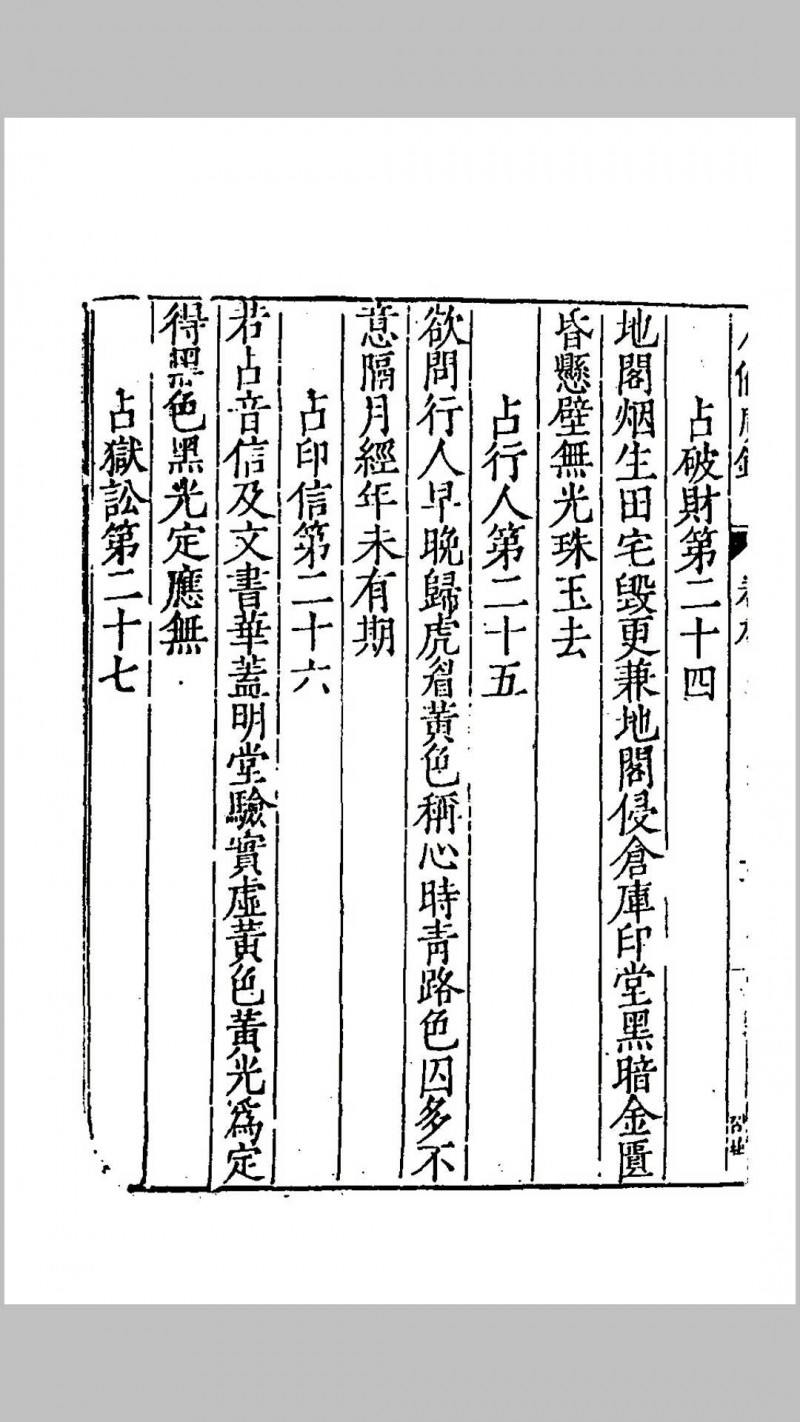 占破財第二十四
地閣烟生田宅毀更兼地閣侵倉庫印堂黑暗金匱
昏懸壁無光珠玉去
占行人第二十五
欲問行人早晚歸虎眉黃色稱心時青路色囚多不
意隔月經年未有期
占印信第二十六
若占音信及文書華蓋明堂驗實虛黃色黃光爲定
得黑色黑光定應無
占獄訟第二十七